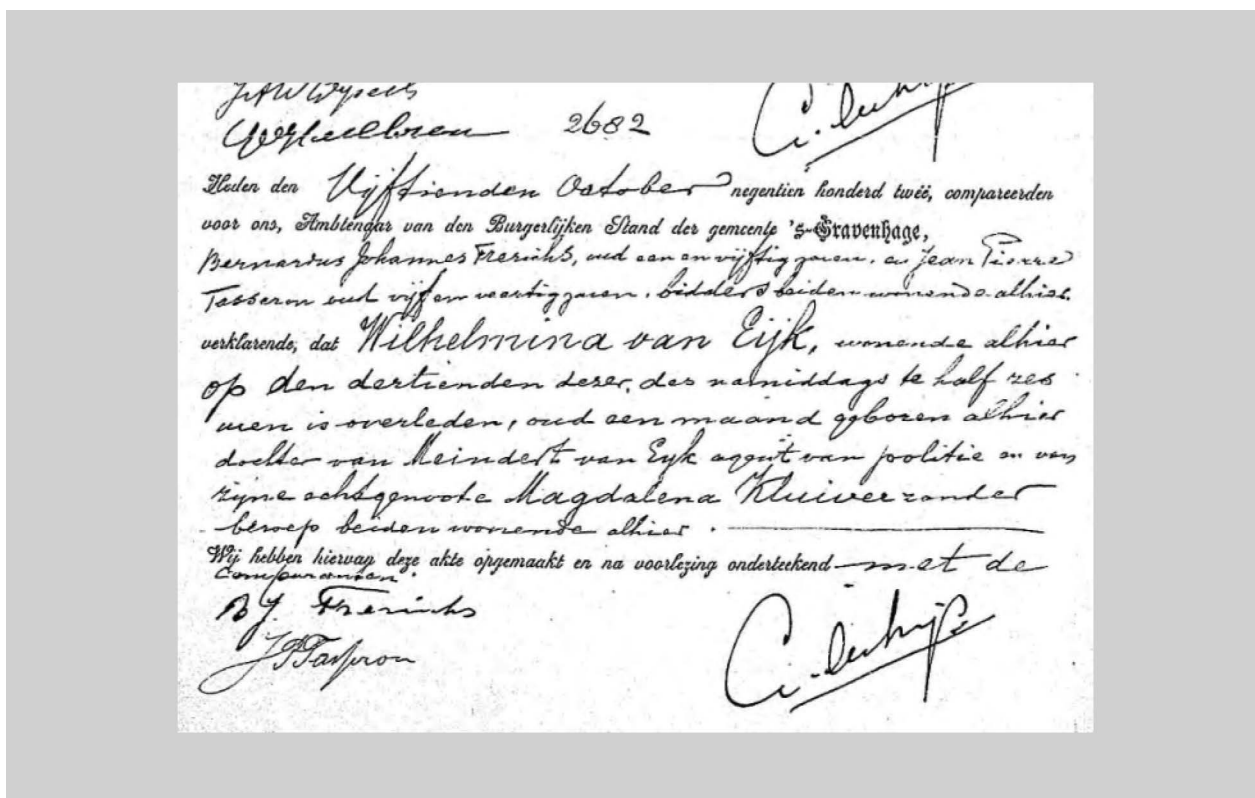 2682
Heden den Vijftienden October negentien honderd twee, compareerden
voor ons, Ambtenaar van den Burgerlijken Stand der gemeente 's-Gravenhage,
Bernardus Johannes Frerichs, oud een en vijftig jaren, en Jean Pierre
Tasseron oud vijf en veertig jaren, bidders beiden wonende alhier
verklarende, dat Wilhelmina van Eijk, wonende alhier
op den dertienden dezer, des namiddags te half zes
uren is overleden, oud een maand geboren alhier
dochter van Meindert van Eyk agent van politie en van
zijne echtgenoote Magdalena Kluiver zonder
beroep beiden wonende alhier.
Wij hebben hiervan deze akte opgemaakt en na voorlezing onderteekend met de
comparanten.
B J. Frerichs
J P Tasseron